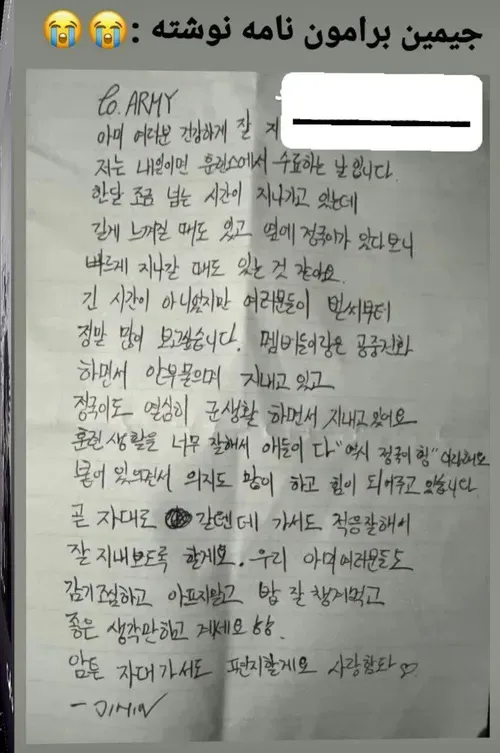 جیمین برامون نامه نوشته :😭😭
To. ARMY
아미 여러분 건강하게 잘 지
저는 내일이면 훈련소에서 수료하는 날입니다.
한달 조금 넘는 시간이 지나가고 있는데
길게 느껴질 때도 있고 옆에 정국이가 있다보니
빠르게 지나갈 때도 있는 것 같아요.
긴 시간이 아니었지만 여러분들이 벌써부터
정말 많이 보고싶습니다. 멤버들이랑은 공중전화
하면서 안부물으며 지내고 있고
정국이도 열심히 군생활 하면서 지내고있어요
훈련 생활을 너무 잘해서 애들이 다 "역시 정국이형" 이라해요
붙어 있으면서 의지도 많이 하고 힘이 되어주고 있습니다.
곧 자대로 갈텐데 가서도 적응잘해서
잘 지내보도록 할게요. 우리 아미여러분들도
감기조심하고 아프지말고 밥 잘 챙겨먹고
좋은 생각만하고 계세요 ㅎㅎ.
암튼 자대가서도 편지할게요 사랑합니다♡
- JIMIN